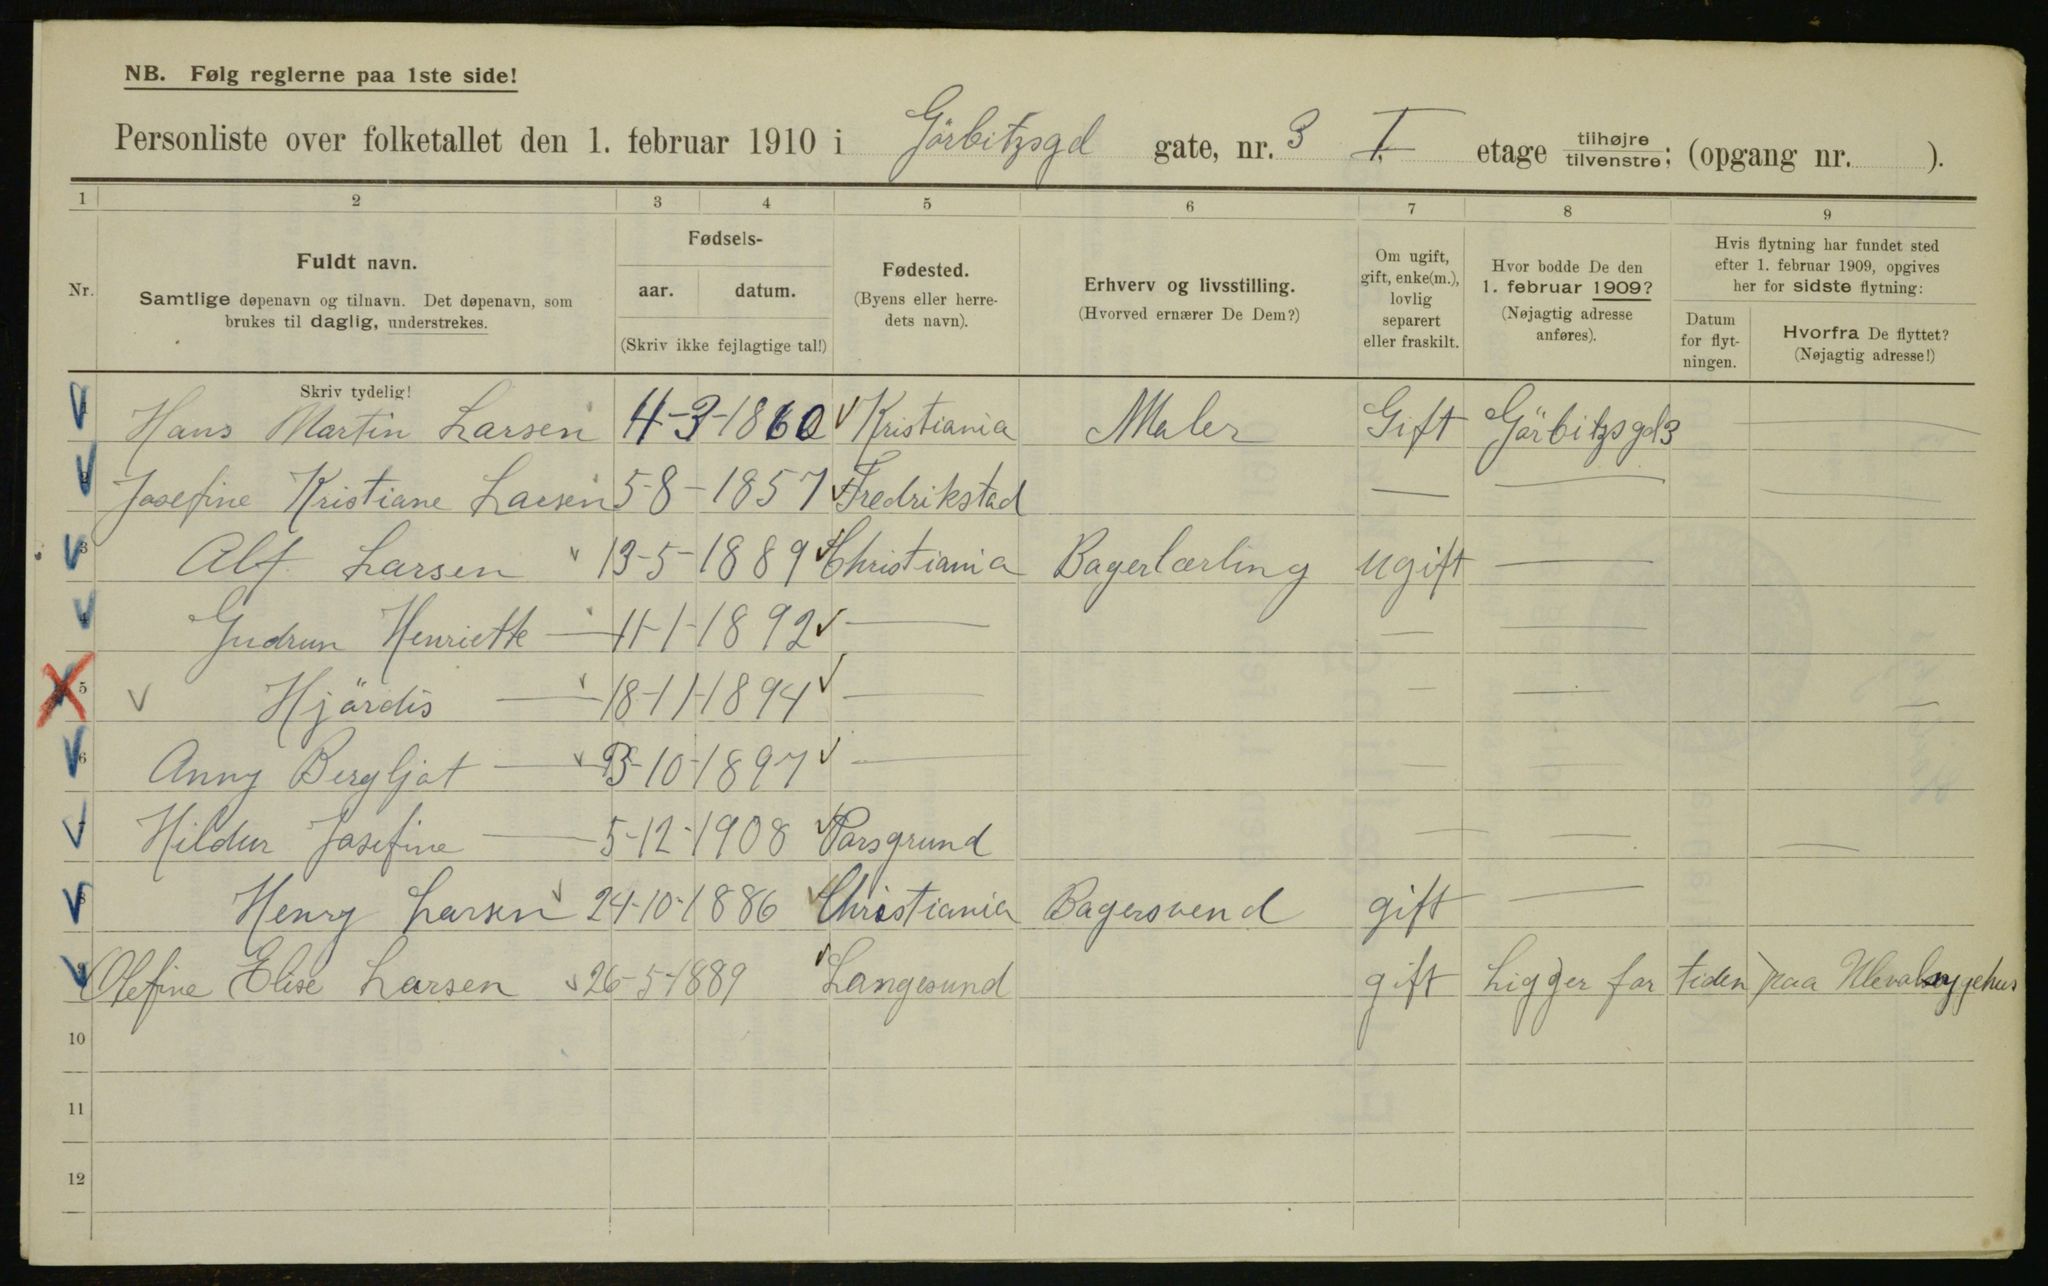 NB. Følg reglerne paa 1ste side!
Personliste over folketallet den 1. februar 1910 i Görbitzsgd gate, nr. 3 I. etage tilhøjre tilvenstre; (opgang nr. ).
1 2 3 4 5 6 7 8 9
Nr.
Fuldt navn.
Samtlige døpenavn og tilnavn. Det døpenavn, som
brukes til daglig, understrekes.
Skriv tydelig!
Fødsels-
aar. datum.
(Skriv ikke fejlagtige tal!)
Fødested.
(Byens eller herre-
dets navn).
Erhverv og livsstilling.
(Hvorved ernærer De Dem?)
Om ugift,
gift, enke(m.),
lovlig
separert
eller fraskilt.
Hvor bodde De den
1. februar 1909?
(Nøjagtig adresse
anføres).
Hvis flytning har fundet sted
efter 1. februar 1909, opgives
her for sidste flytning:
Datum
for flyt-
ningen.
Hvorfra De flyttet?
(Nøjagtig adresse!)
1 Hans Martin Larsen 4-3-1860 Kristiania Maler Gift Görbitzsgd 3 —
2 Josefine Kristiane Larsen 5-8-1857 Fredrikstad — — —
3 Alf Larsen 13-5-1889 Christiania Bagerlærling ugift —
4 Gudrun Henriette — 11-1-1892 — — —
5 Hjördis — 18-11-1894 — — — —
6 Anny Bergljot — 3-10-1897 — — —
7 Hildur Josefine — 5-12-1908 Porsgrund — — —
8 Henry Larsen 24-10-1886 Christiania Bagersvend gift —
9 Olefine Elise Larsen 26-5-1889 Langesund gift Ligger for tiden paa Ulevalsygehus
10
11
12